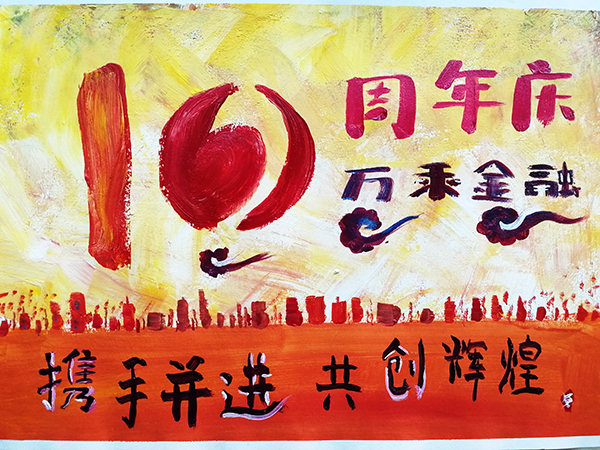 10周年庆
万乘金融
携手并进 共创辉煌